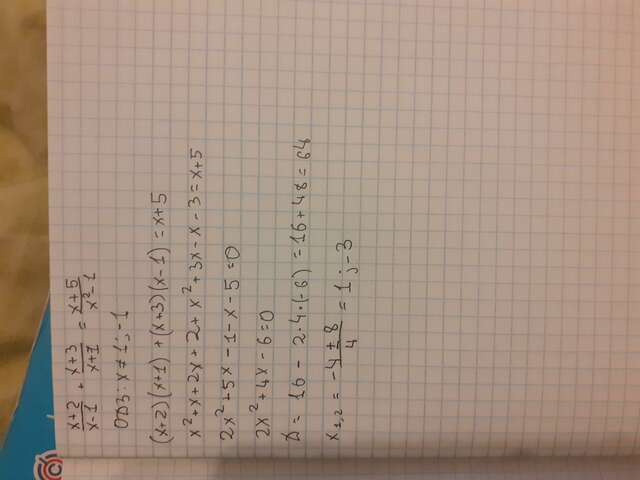 x+2/x-1 + x+3/x+1 = x+5/x²-1
ОДЗ: x ≠ 1; -1
(x+2)(x+1) + (x+3)(x-1) = x+5
x²+x+2x+2+x²+3x-x-3=x+5
2x²+5x-1-x-5=0
2x²+4x-6=0
D = 16 - 2·4·(-6) = 16+48=64
x₁,₂ = -4±8/4 = 1; -3